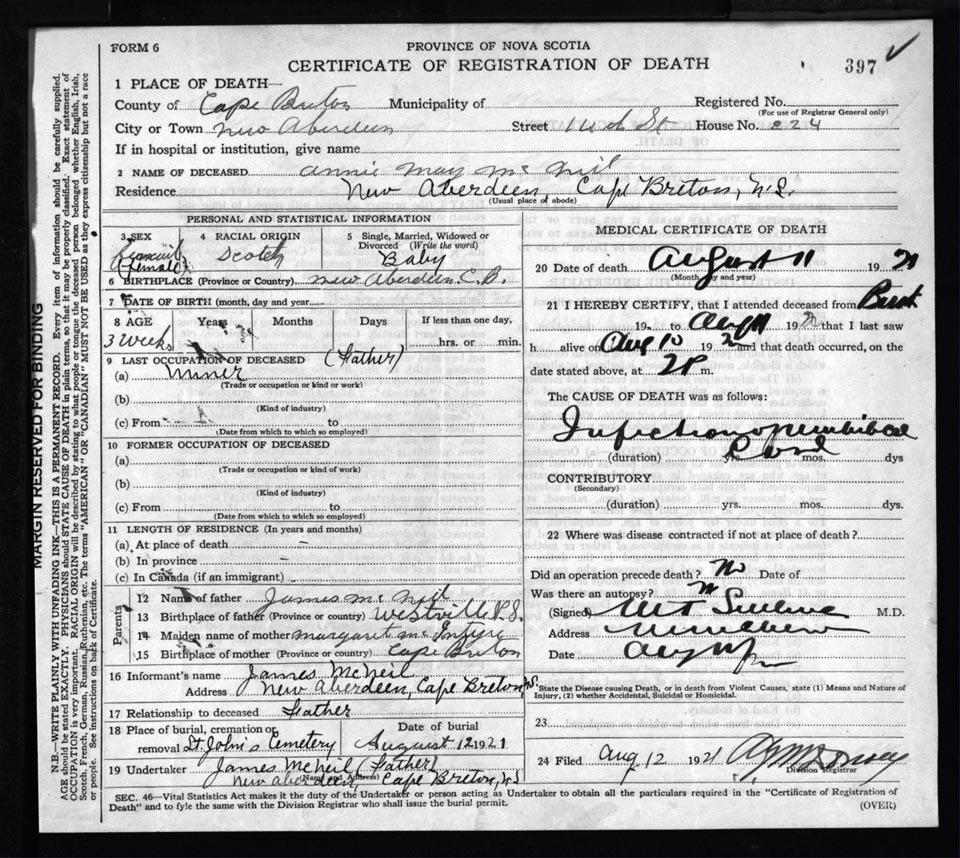 FORM 6
PROVINCE OF NOVA SCOTIA
CERTIFICATE OF REGISTRATION OF DEATH
397
1 PLACE OF DEATH—
County of Cape Breton Municipality of
Registered No.
(For use of Registrar General only)
City or Town New Aberdeen Street St House No. 224
If in hospital or institution, give name
2 NAME OF DECEASED Annie May Mc Neil
Residence New Aberdeen, Cape Breton, N.S.
(Usual place of abode)
PERSONAL AND STATISTICAL INFORMATION
3 SEX
Female
4 RACIAL ORIGIN
Scotch
5 Single, Married, Widowed or Divorced (Write the word)
Baby
6 BIRTHPLACE (Province or Country) New Aberdeen C.B.
7 DATE OF BIRTH (month, day and year)
8 AGE Years Months Days If less than one day,
3 Weeks hrs. or min.
9 LAST OCCUPATION OF DECEASED (Father)
(a) Miner
(Trade or occupation or kind or work)
(b)
(Kind of industry)
(c) From to
(Date from which to which so employed)
10 FORMER OCCUPATION OF DECEASED
(a)
(Trade or occupation or kind of work)
(b)
(Kind of industry)
(c) From to
(Date from which to which so employed)
11 LENGTH OF RESIDENCE (In years and months)
(a) At place of death –
(b) In province –
(c) In Canada (if an immigrant) –
Parents
12 Name of father James Mc Neil
13 Birthplace of father (Province or country) Westville N.S.
14 Maiden name of mother Margaret Mc Intyre
15 Birthplace of mother (Province or country) Cape Breton
16 Informant's name James McNeil
Address New Aberdeen, Cape Breton N.S.
17 Relationship to deceased Father
18 Place of burial, cremation or removal St John's Cemetery
Date of burial
August 12 1921
19 Undertaker James McNeil (Father)
(Name and Address)
New Aberdeen Cape Breton, N.S.
MEDICAL CERTIFICATE OF DEATH
20 Date of death August 11 19 21
(Month, day and year)
21 I HEREBY CERTIFY, that I attended deceased from Birth
19 to Aug 11 19 21 that I last saw
h alive on Aug 10 19 2 and that death occurred, on the
date stated above, at 2 P m.
The CAUSE OF DEATH was as follows:
Infection of umbilical
Cord
(duration) yrs. mos. dys
CONTRIBUTORY
(Secondary)
(duration) yrs. mos. dys.
22 Where was disease contracted if not at place of death?
Did an operation precede death? No Date of
Was there an autopsy? N
(Signed) M.D.
Address
Date Aug
State the Disease causing Death, or in death from Violent Causes, state (1) Means and Nature of Injury, (2) whether Accidental, Suicidal or Homicidal.
23
24 Filed Aug 12 1921
Division Registrar
SEC. 46—Vital Statistics Act makes it the duty of the Undertaker or person acting as Undertaker to obtain all the particulars required in the "Certificate of Registration of
Death" and to fyle the same with the Division Registrar who shall issue the burial permit.
(OVER)
MARGIN RESERVED FOR BINDING
N.B.—WRITE PLAINLY WITH UNFADING INK—THIS IS A PERMANENT RECORD. Every item of information should be carefully supplied.
AGE should be stated EXACTLY. PHYSICIANS should STATE CAUSE OF DEATH in plain terms, so that it may be properly classified. Exact statement of
OCCUPATION is very important. RACIAL ORIGIN will be described by stating to what people or tongue the deceased person belonged whether English, Irish,
Scotch, French, German, Russian, Ruthenian, etc. The terms "AMERICAN" OR "CANADIAN" MUST NOT BE USED as they express citizenship but not a race
or people. See instructions on back of Certificate.